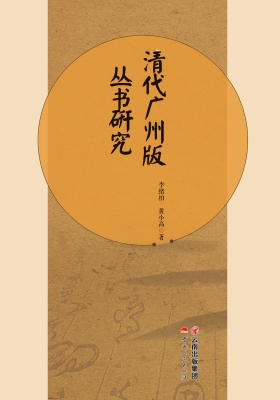 清代广州版
丛书研究
李绪柏 黄小高 著
云南出版集团